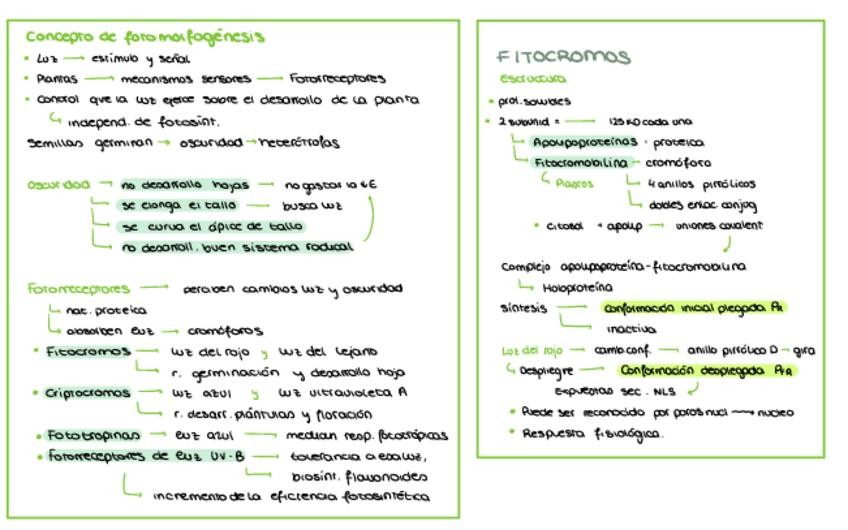 Concepto de fotomorfogénesis
• Luz → estímulo y señal
• Plantas → mecanismos sensores → Fotorreceptores
• Control que la luz ejerce sobre el desarrollo de la planta
↳ independ. de fotosint.
Semillas germinan → oscuridad → heterótrofas
Oscuridad → no desarrollo hojas → no gastar la E
se elonga el tallo → busca luz
se curva el ápice de tallo
no desarroll. buen sistema radical
Fotorreceptores → perciben cambios luz y oscuridad
nat. proteica
absorben luz → cromóforos
• Fitocromos → luz del rojo y luz del lejano
r. germinación y desarrollo hoja
• Criptocromos → luz azul y luz ultravioleta A
r. desarr. plántulas y floración
• Fototropinas → luz azul → median resp. fototrópicas
• Fotorreceptores de luz UV-B → tolerancia a esa luz,
biosínt. flavonoides
incremento de la eficiencia fotosintética
FITOCROMOS
estructura
• prot. solubles
• 2 subunid = → 125 KD cada una
Apoupoproteínas · proteica
Fitocromobilina - cromóforo
↳ Plastos
4 anillos pirrólicos
dobles enlac conjug
• citosol + apoup → uniones covalent
Complejo apoupoproteína-fitocromobilina
↳ Holoproteína
Síntesis → Conformación inicial plegada PR
inactiva
Luz del rojo → camb conf. → anillo pirrólico D → gira
↳ Despliegue → Conformación desplegada PFR
Expuestas sec. NLS
• Puede ser reconocido por poros nucl → nucleo
• Respuesta fisiológica.